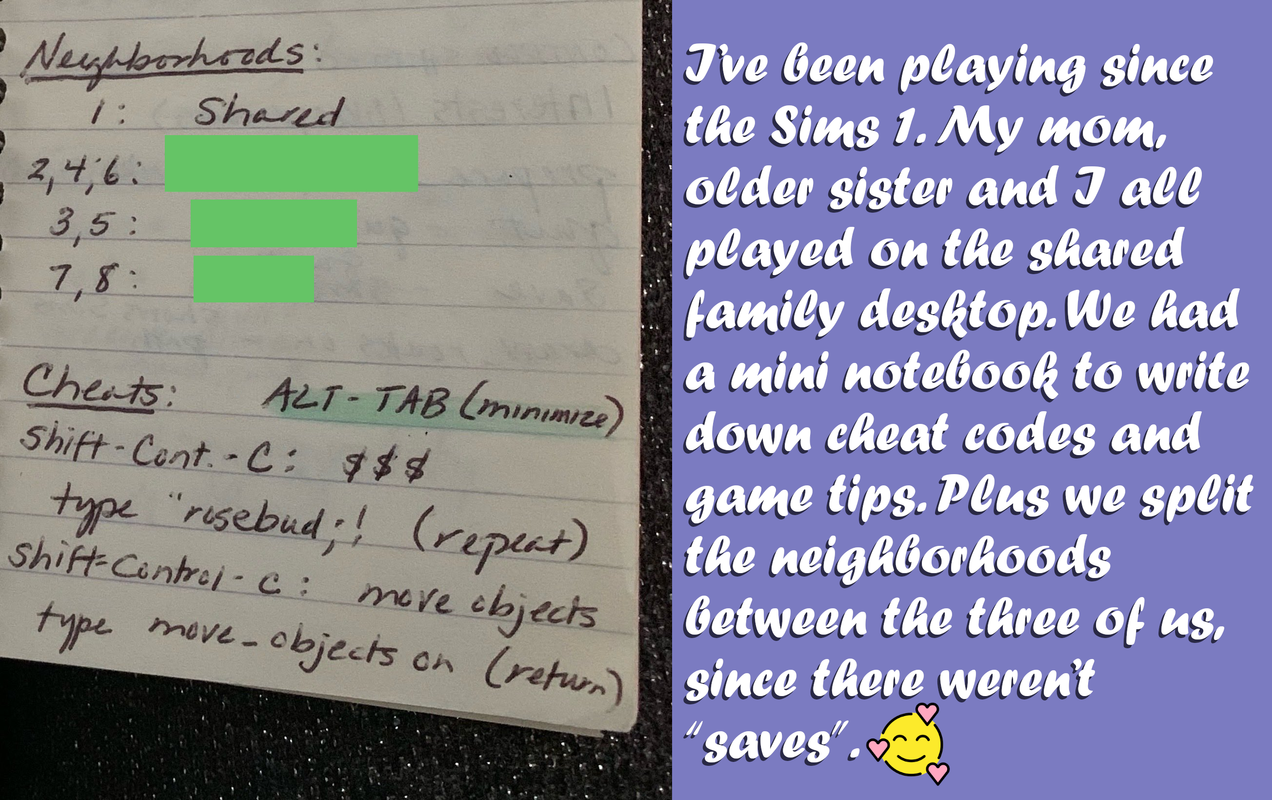 Neighborhoods:
1: Shared
2,4,6:
3,5:
7,8:
Cheats: ALT-TAB (minimize)
Shift-Cont.-C: $$$
type "rosebud;! (repeat)
Shift-Control-C: move objects
type move_objects on (return)
I've been playing since
the Sims 1. My mom,
older sister and I all
played on the shared
family desktop. We had
a mini notebook to write
down cheat codes and
game tips. Plus we split
the neighborhoods
between the three of us,
since there weren't
"saves".